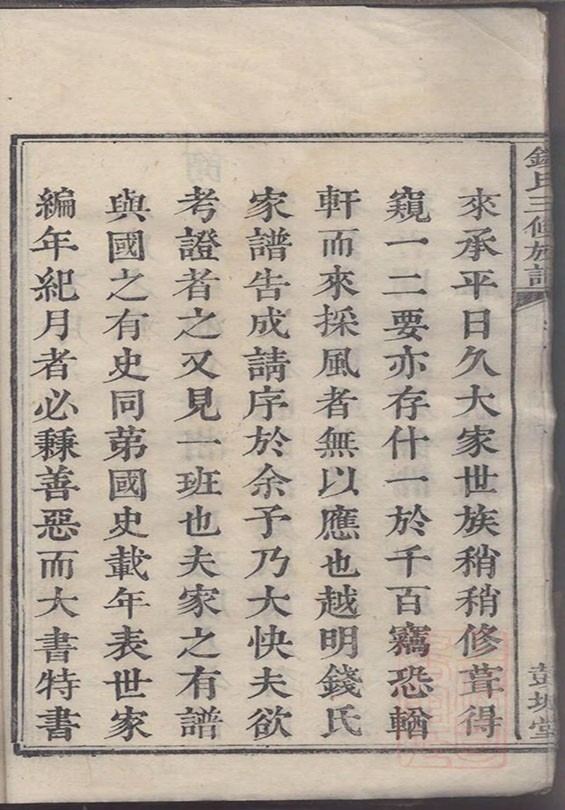 錢氏三修族譜
來承平日久大家世族稍稍修葺得
窺一二要亦存什一於千百竊恐輶
軒而來採風者無以應也越明錢氏
家譜告成請序於余予乃大快夫欲
考證者之又見一班也夫家之有譜
與國之有史同苐國史載年表世家
編年紀月者必蒹善惡而大書特書
彭城堂